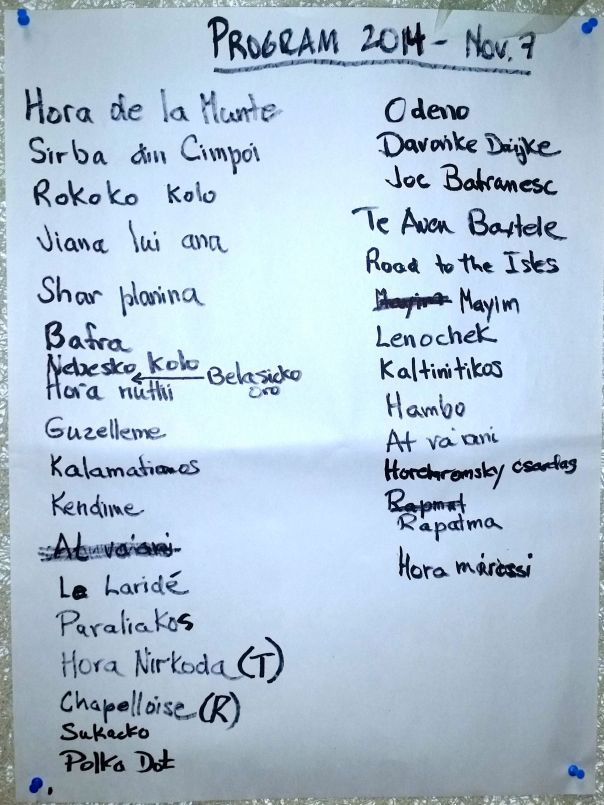 PROGRAM 2014 - Nov. 7
Hora de la Munte
Sirba din Cimpoi
Rokoko Kolo
Jiana lui ana
Shar planina
Bafra
Nebesko kolo
Belasicko oro
Hora nuttii
Guzelleme
Kalamatianos
Kendime
At va'ani
Le Laridé
Paraliakos
Hora Nirkoda (T)
Chapelloise (R)
Sukacko
Polka Dot
Odeno
Davorike Dajke
Joc Batranesc
Te Aven Baxtele
Road to the Isles
Mayim
Lenochek
Kaltinitikos
Hambo
At va'ani
Horehromsky csardas
Rapatma
Hora miresii